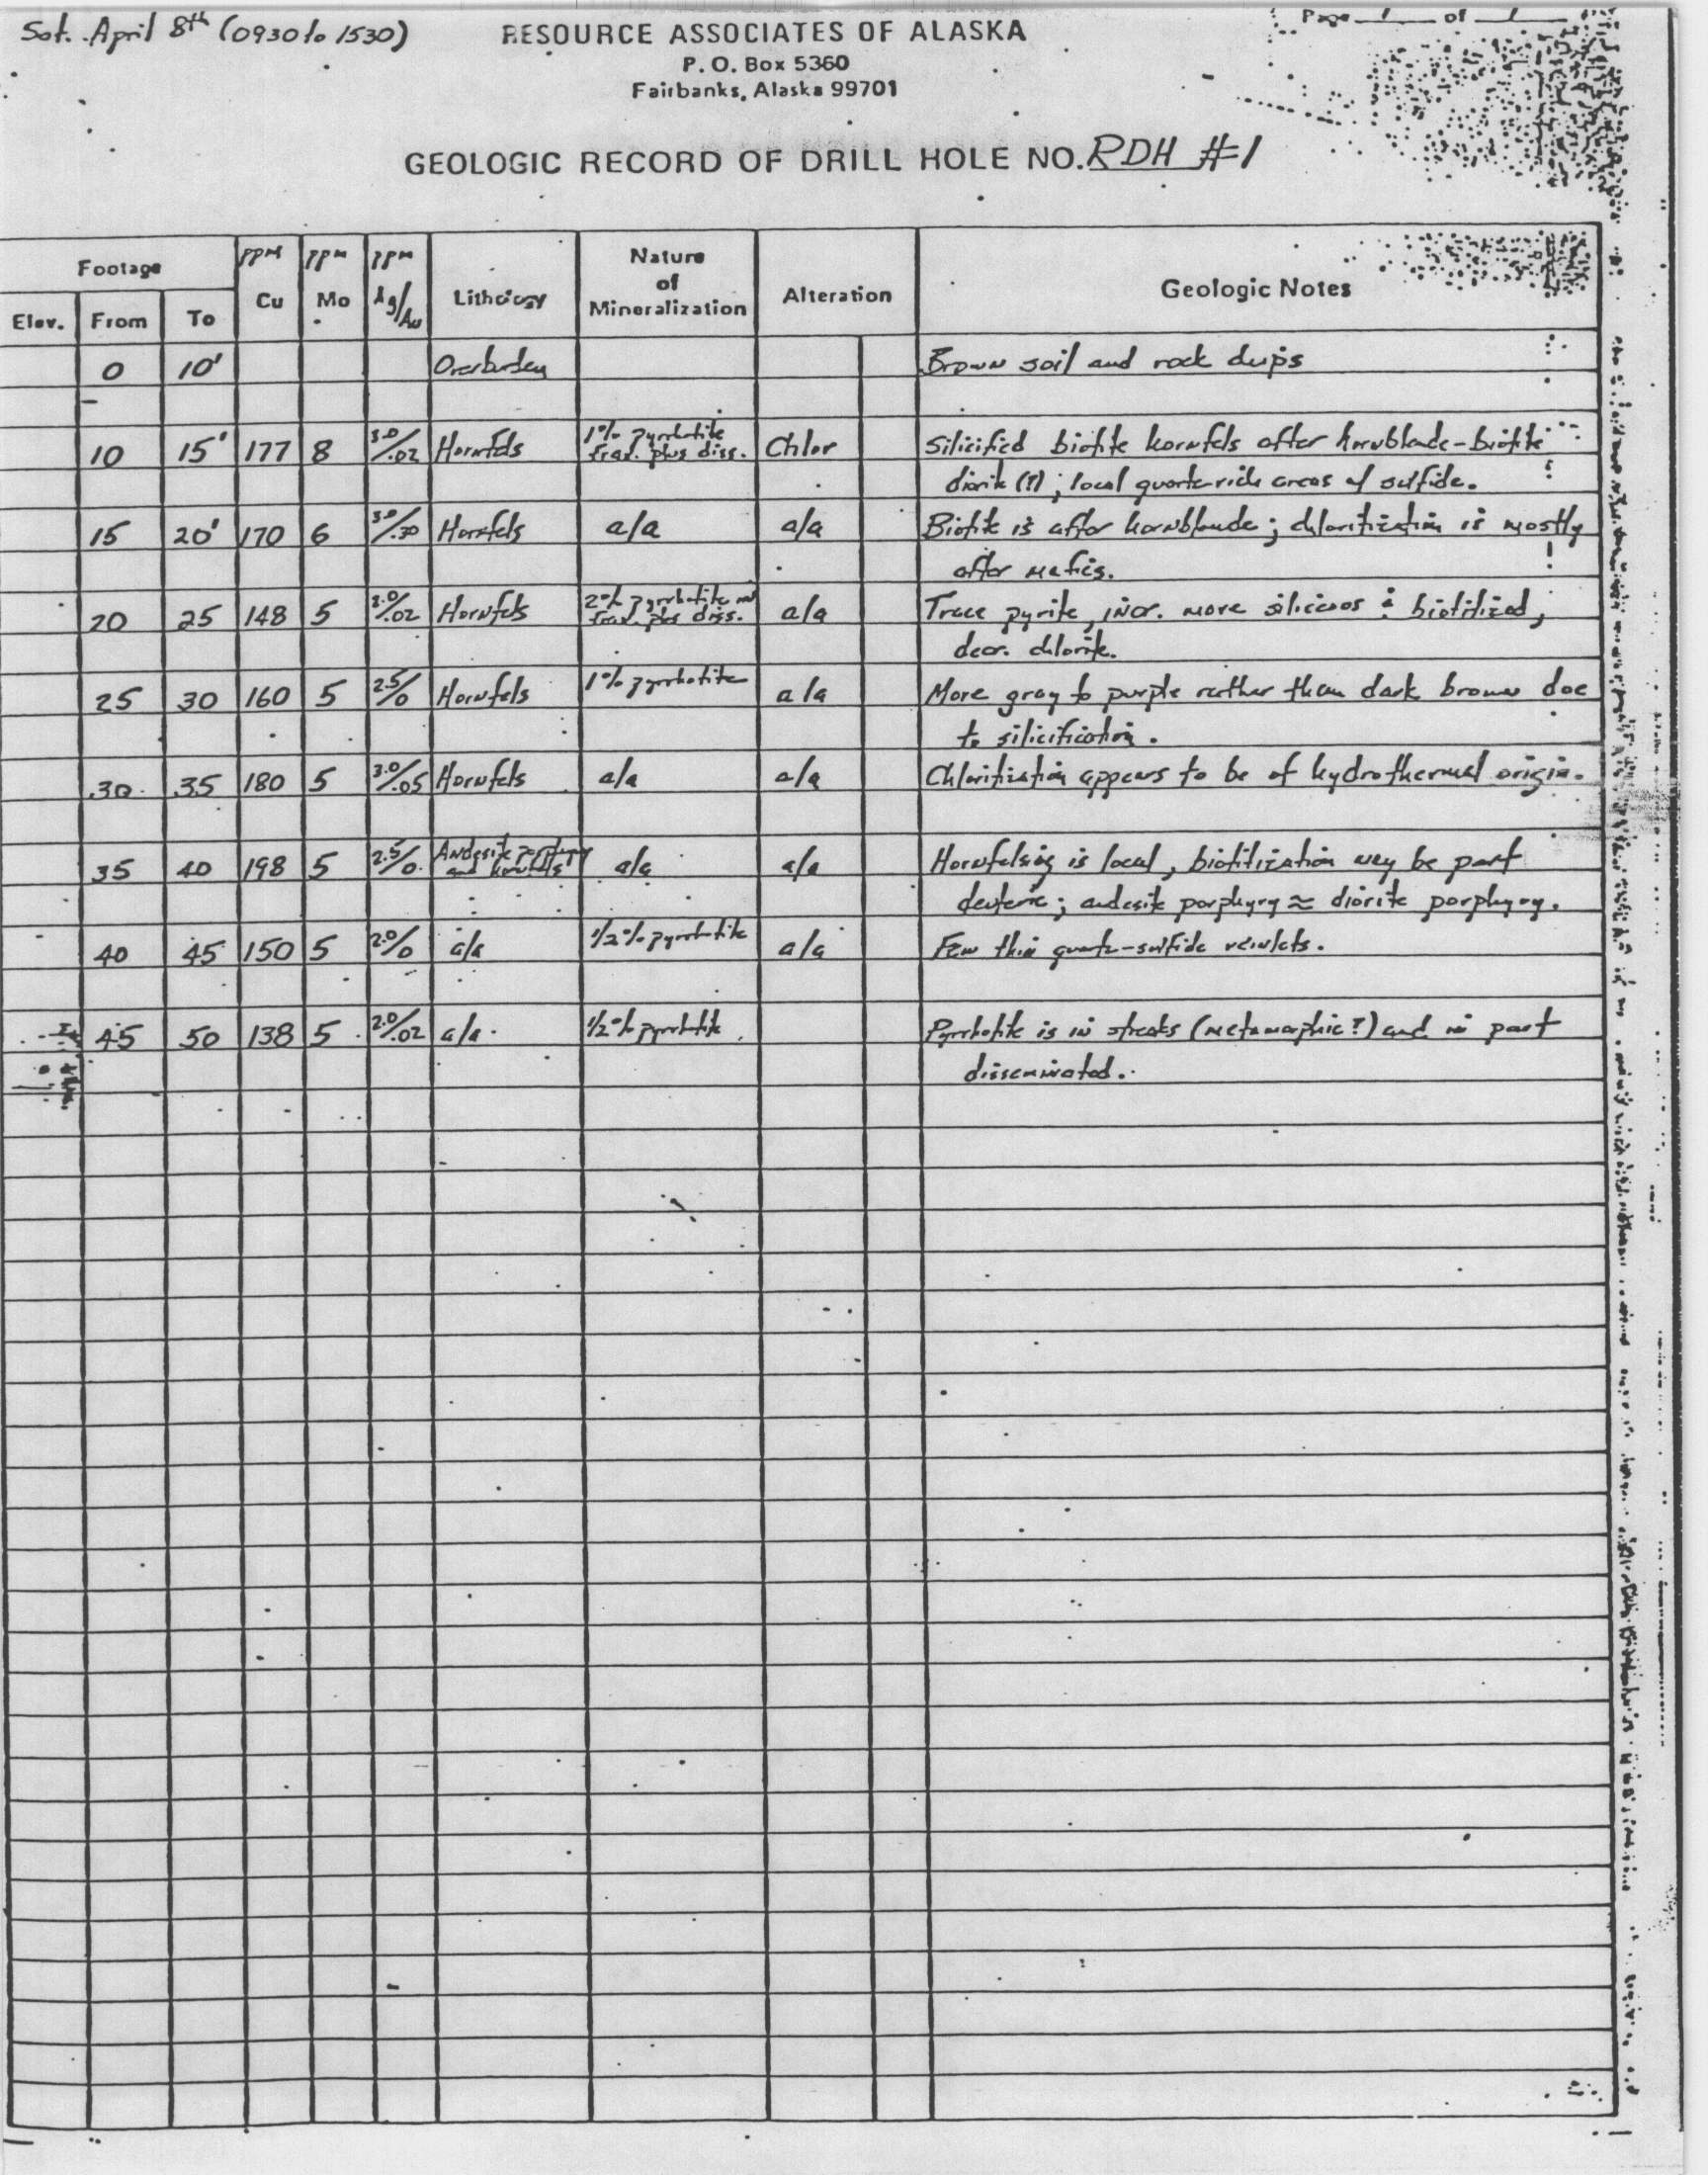 Sat. April 8th (0930 to 1530)
RESOURCE ASSOCIATES OF ALASKA
Page 1 of 1
P. O. Box 5360
Fairbanks, Alaska 99701
GEOLOGIC RECORD OF DRILL HOLE NO. RDH #1
Footage PPM PPM PPM Nature of Mineralization
Elev. From To Cu Mo Ag/Au Lithology Alteration Geologic Notes
0 10' Overburden Brown soil and rock chips
10 15' 177 8 3.0/.02 Hornfels 1% pyrrhotite frax. plus diss. Chlor Silicified biotite hornfels after hornblende-biotite
diorite (?); local quartz-rich areas w/ sulfide.
15 20' 170 6 3.0/.30 Hornfels a/a a/a Biotite is after hornblende; chloritization is mostly
after mafics.
20 25 148 5 2.0/.02 Hornfels 2% pyrrhotite frax. plus diss. a/a Trace pyrite, incr. more siliceous & biotitized,
decr. chlorite.
25 30 160 5 2.5/0 Hornfels 1% pyrrhotite a/a More gray to purple rather than dark brown due
to silicification.
30 35 180 5 3.0/.05 Hornfels a/a a/a Chloritization appears to be of hydrothermal origin.
35 40 198 5 2.5/0 Andesite porphyry and hornfels a/a a/a Hornfelsing is local, biotitization may be part
deuteric; andesite porphyry ≈ diorite porphyry.
40 45 150 5 2.0/0 a/a 1/2% pyrrhotite a/a Few thin quartz-sulfide veinlets.
45 50 138 5 2.0/.02 a/a 1/2% pyrrhotite Pyrrhotite is in streaks (metamorphic?) and in part
disseminated.